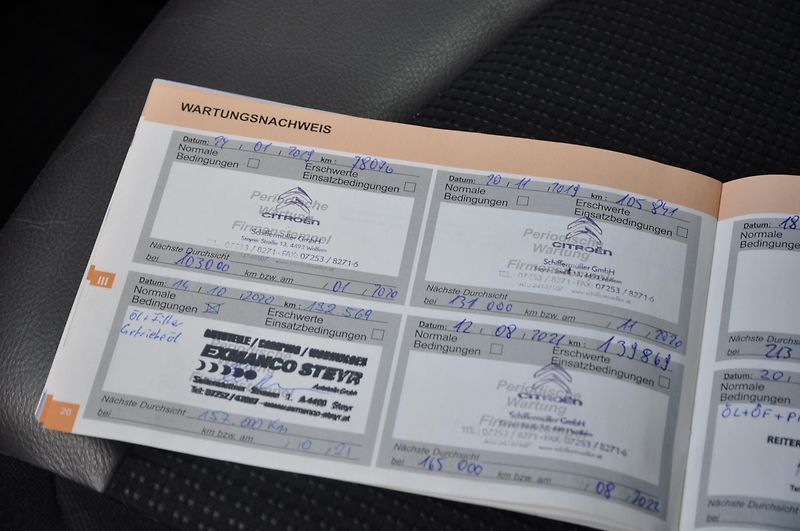 WARTUNGSNACHWEIS
Datum: 24, 01, 2019 km: 78076
Normale Bedingungen Erschwerte Einsatzbedingungen
Periodische
Wartung
Firmenstempel
CITROËN
Schiffermüller GmbH
Steyrer Straße 13, 4493 Wolfern
TEL.: 07253 / 8271 - FAX: 07253 / 8271-6
Nächste Durchsicht
bei 103000 km bzw. am , 01 , 2020
Datum: 20, 11, 2019 km: 105 841
Normale Bedingungen Erschwerte Einsatzbedingungen
Periodische
Wartung
Firmenstempel
CITROËN
Schiffermüller GmbH
TEL.: 07253 / 8271 - FAX: 07253 / 8271-6
www.schiffermueller.at
Nächste Durchsicht
bei 131 000 km bzw. am , 11 , 2020
Datum: 14, 10, 2020 km: 132 569
Normale Bedingungen Erschwerte Einsatzbedingungen
Öl + Filter
Getriebeöl
EXMANCO STEYR
A-4400 Steyr
Nächste Durchsicht
bei 157.000 km
km bzw. am , 10 , 21
Datum: 12, 08, 2021 km: 139869
Normale Bedingungen Erschwerte Einsatzbedingungen
Periodische
Wartung
CITROËN
Schiffermüller GmbH
TEL.: 07253 / 8271 - FAX: 07253 / 8271-6
www.schiffermueller.at
Nächste Durchsicht
bei 165 000 km bzw. am , 08 , 2022
III
26
Datum: 18
Normale
Bedingungen
Nächste Durchsicht
bei 213
Datum: 20,
Normale
Bedingungen
ÖL+ÖF+P
REITER
Nächste Durchsicht
bei